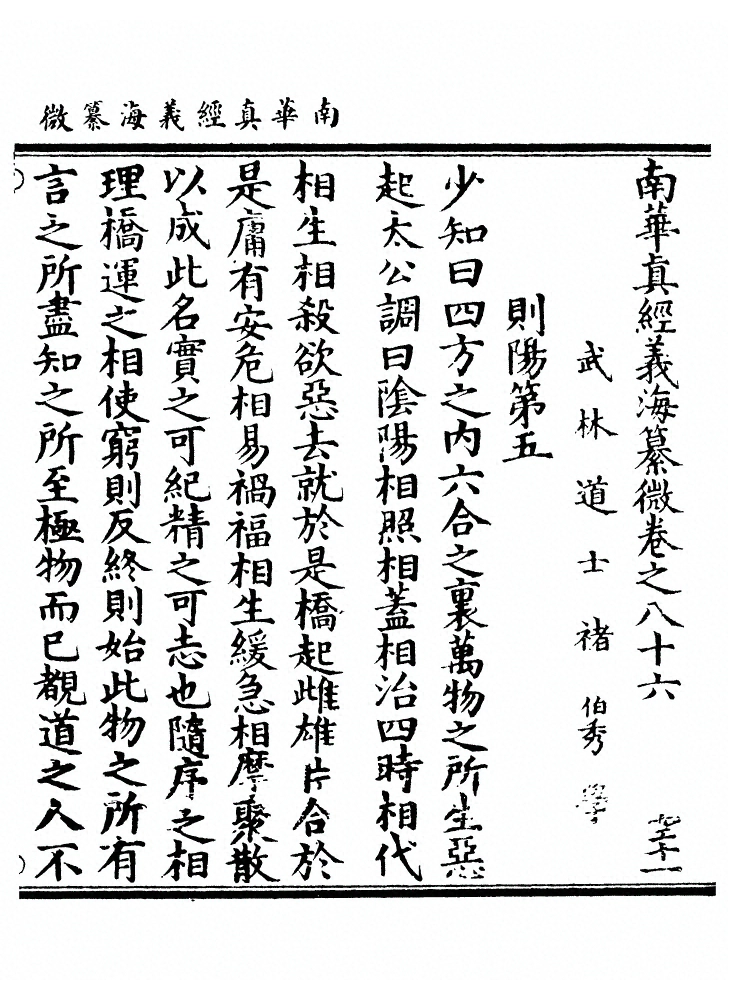 南華真經義海纂微
南華真經義海纂微卷之八十六
武林道士褚伯秀學
則陽第五
少知曰四方之內六合之裏萬物之所生惡
起太公調曰陰陽相照相蓋相治四時相代
相生相殺欲惡去就於是橋起雌雄片合於
是庸有安危相易禍福相生緩急相摩聚散
以成此名實之可紀精之可志也隨序之相
理橋運之相使窮則反終則始此物之所有
言之所盡知之所至極物而已覩道之人不